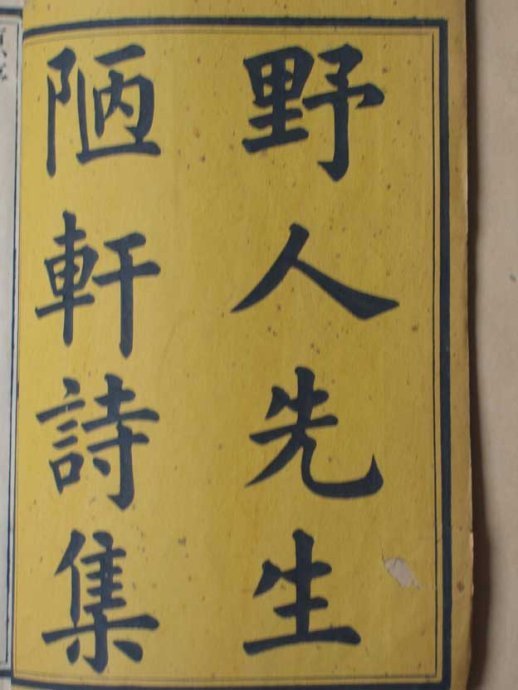 野人先生
陋軒詩集